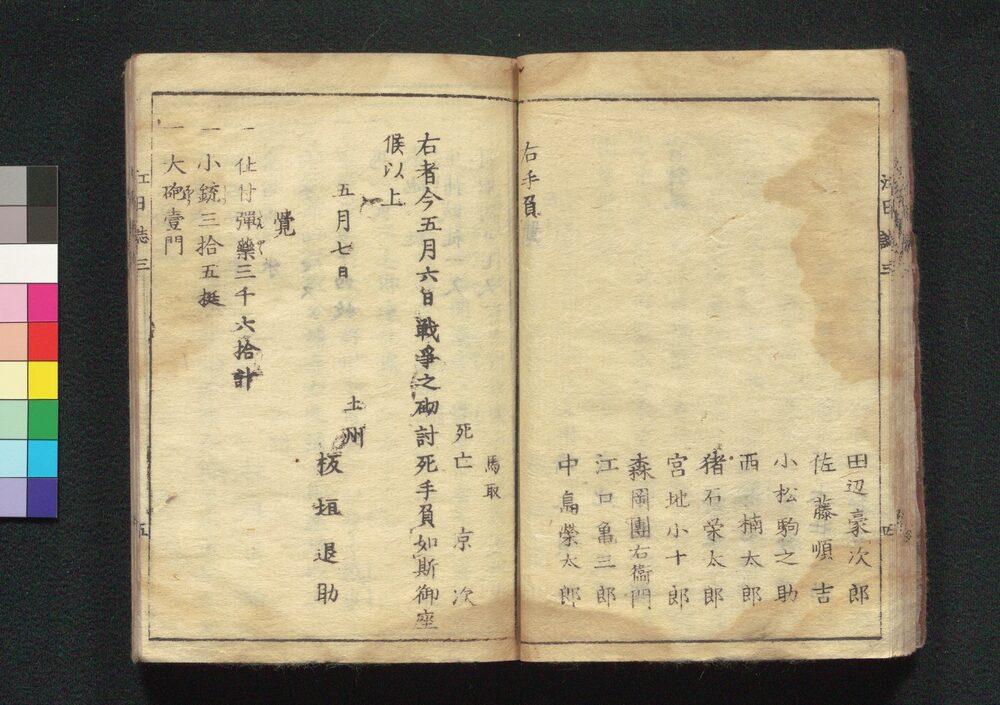 田辺豪次郎
佐藤順吉
小松駒之助
西楠太郎
猪石栄太郎
宮地小十郎
森岡團右衞門
江口亀三郎
中島榮太郎
右手負
馬取
死亡 京次
右者今五月六日戦爭之砌討死手負如斯御座
候以上
五月七日
土州
板垣退助
覚
一 仕付彈藥三千六拾計
一 小銃三拾五挺
一 大砲壹門
江日誌三
五